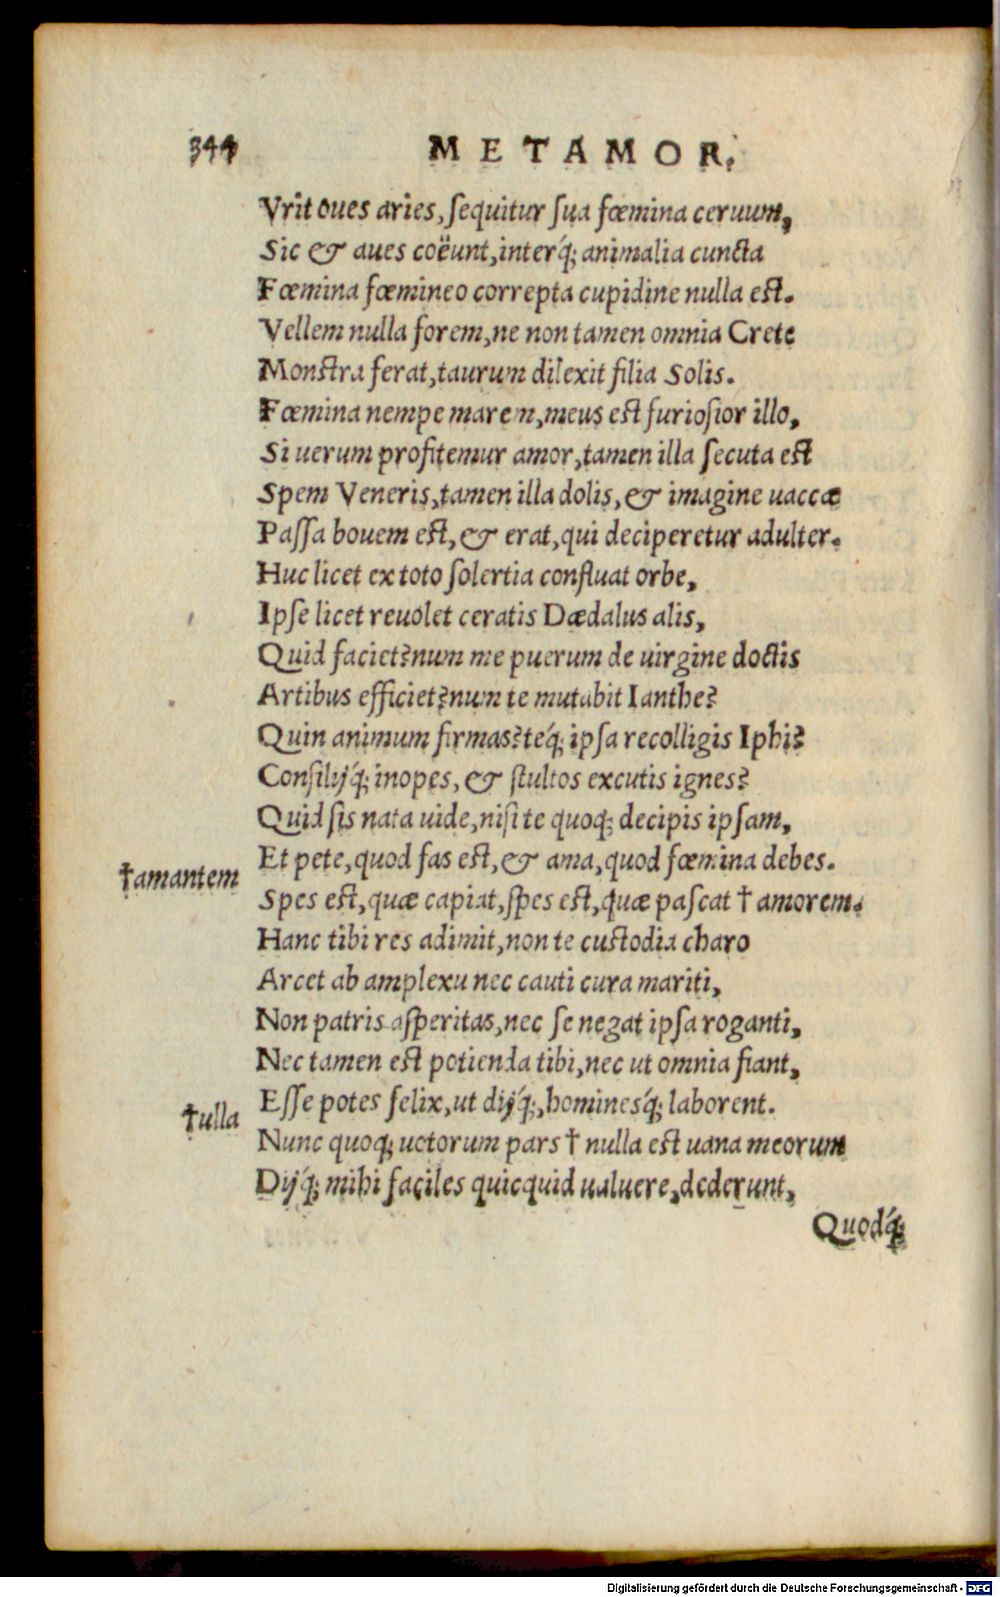 344 METAMOR.
Vrit oues aries, ſequitur ſua fœmina ceruum,
Sic & aues coëunt, interq́; animalia cuncta
Fœmina fœmineo correpta cupidine nulla est.
Vellem nulla forem, ne non tamen omnia Crete
Monstra ferat, taurum dilexit filia Solis.
Fœmina nempe marem, meus est furioſior illo,
Si uerum profitemur amor, tamen illa ſecuta est
Spem Veneris, tamen illa dolis, & imagine uaccæ
Paſſa bouem est, & erat, qui deciperetur adulter.
Huc licet ex toto ſolertia confluat orbe,
Ipſe licet reuolet ceratis Dædalus alis,
Quid faciet? num me puerum de uirgine doctis
Artibus efficiet? num te mutabit Ianthe?
Quin animum firmas? teq́; ipſa recolligis Iphi?
Conſilijq́; inopes, & ſtultos excutis ignes?
Quid ſis nata uide, niſi te quoq; decipis ipſam,
Et pete, quod fas est, & ama, quod fœmina debes.
†amantem
Spes est, quæ capiat, ſpes est, quæ paſcat † amorem.
Hanc tibi res adimit, non te custodia charo
Arcet ab amplexu nec cauti cura mariti,
Non patris aſperitas, nec ſe negat ipſa roganti,
Nec tamen est potienda tibi, nec ut omnia fiant,
Eſſe potes felix, ut dijq́;, hominesq́; laborent.
†ulla
Nunc quoq; uotorum pars † nulla est uana meorum
Dijq́; mihi faciles quicquid ualuere, dederunt,
Quodq́;
Digitalisierung gefördert durch die Deutsche Forschungsgemeinschaft - DFG